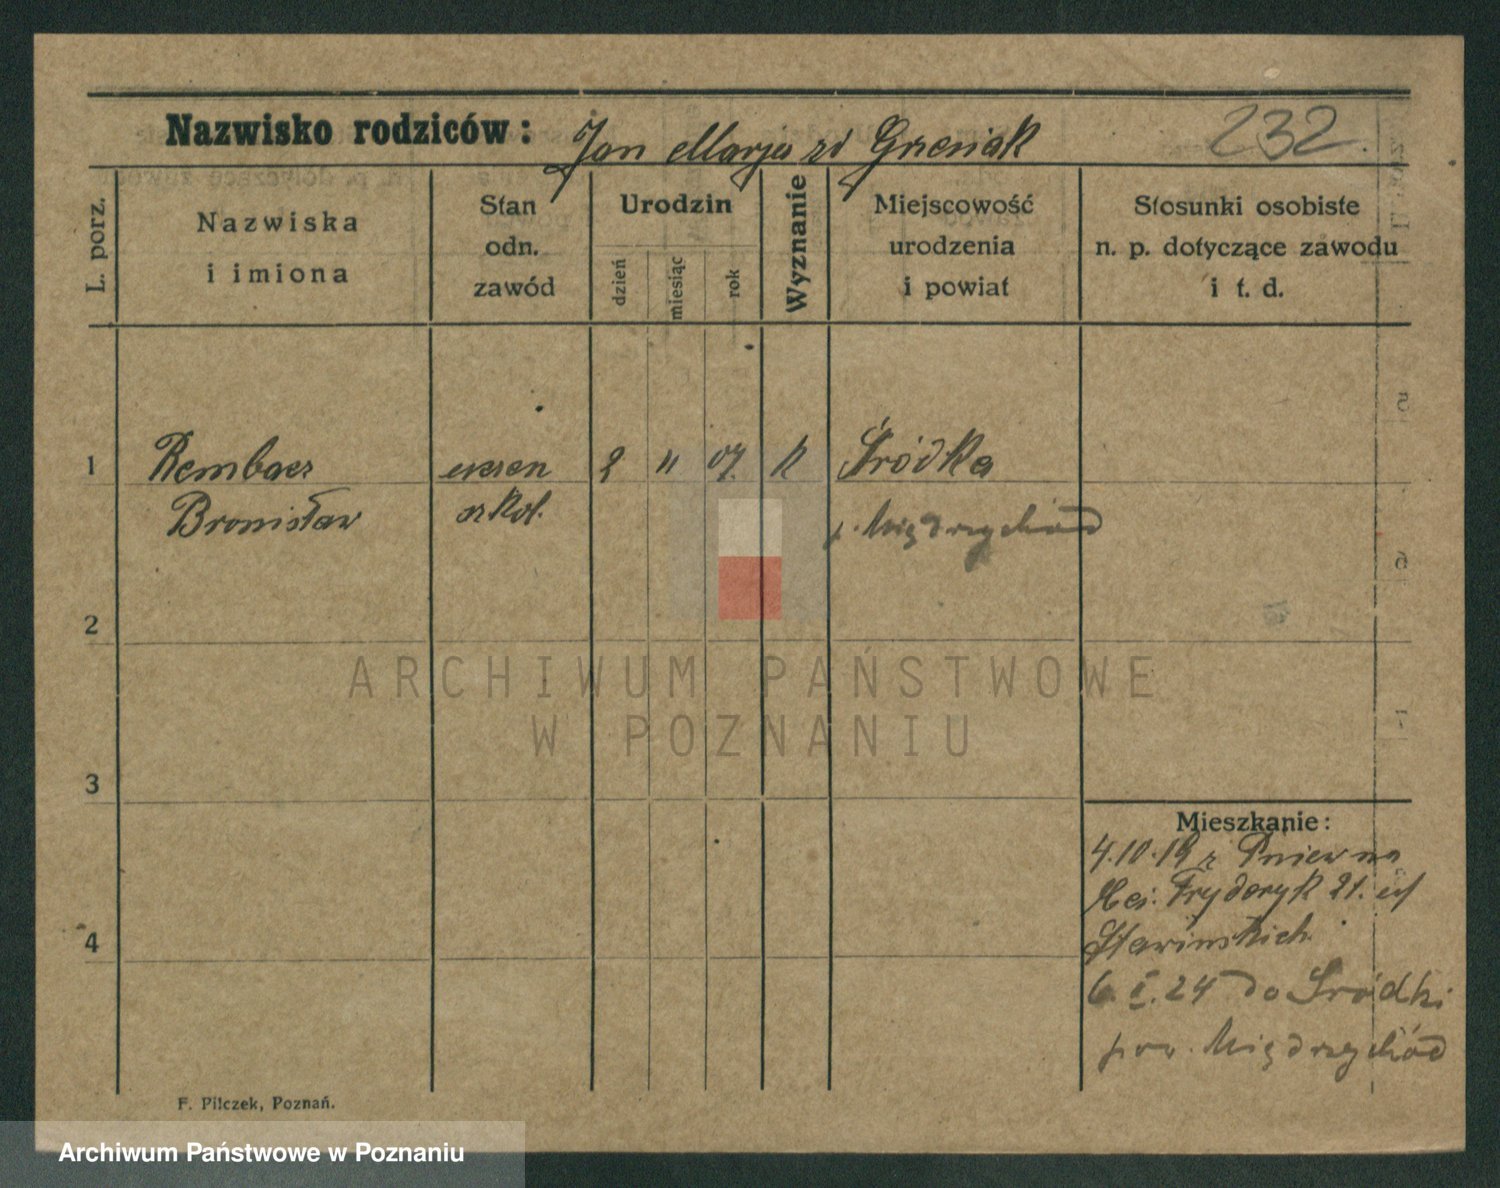 Nazwisko rodziców: Jan Marja zd Grzesiak
232
L. porz.
Nazwiska
i imiona
Stan
odn.
zawód
Urodzin
dzień
miesiąc
rok
Wyznanie
Miejscowość
urodzenia
i powiat
Stosunki osobiste
n. p. dotyczące zawodu
i t. d.
1 Rembacz uczen 2 11 07. k Śródka
Bronisław szkol. p. Międzychód
2
3
4
Mieszkanie:
4.10.19 z Pniew na
Fryderyk 21. u
6. I. 24 do Śródki
pow. Międzychód
F. Pilczek, Poznań.
ARCHIWUM PAŃSTWOWE
W POZNANIU
Archiwum Państwowe w Poznaniu